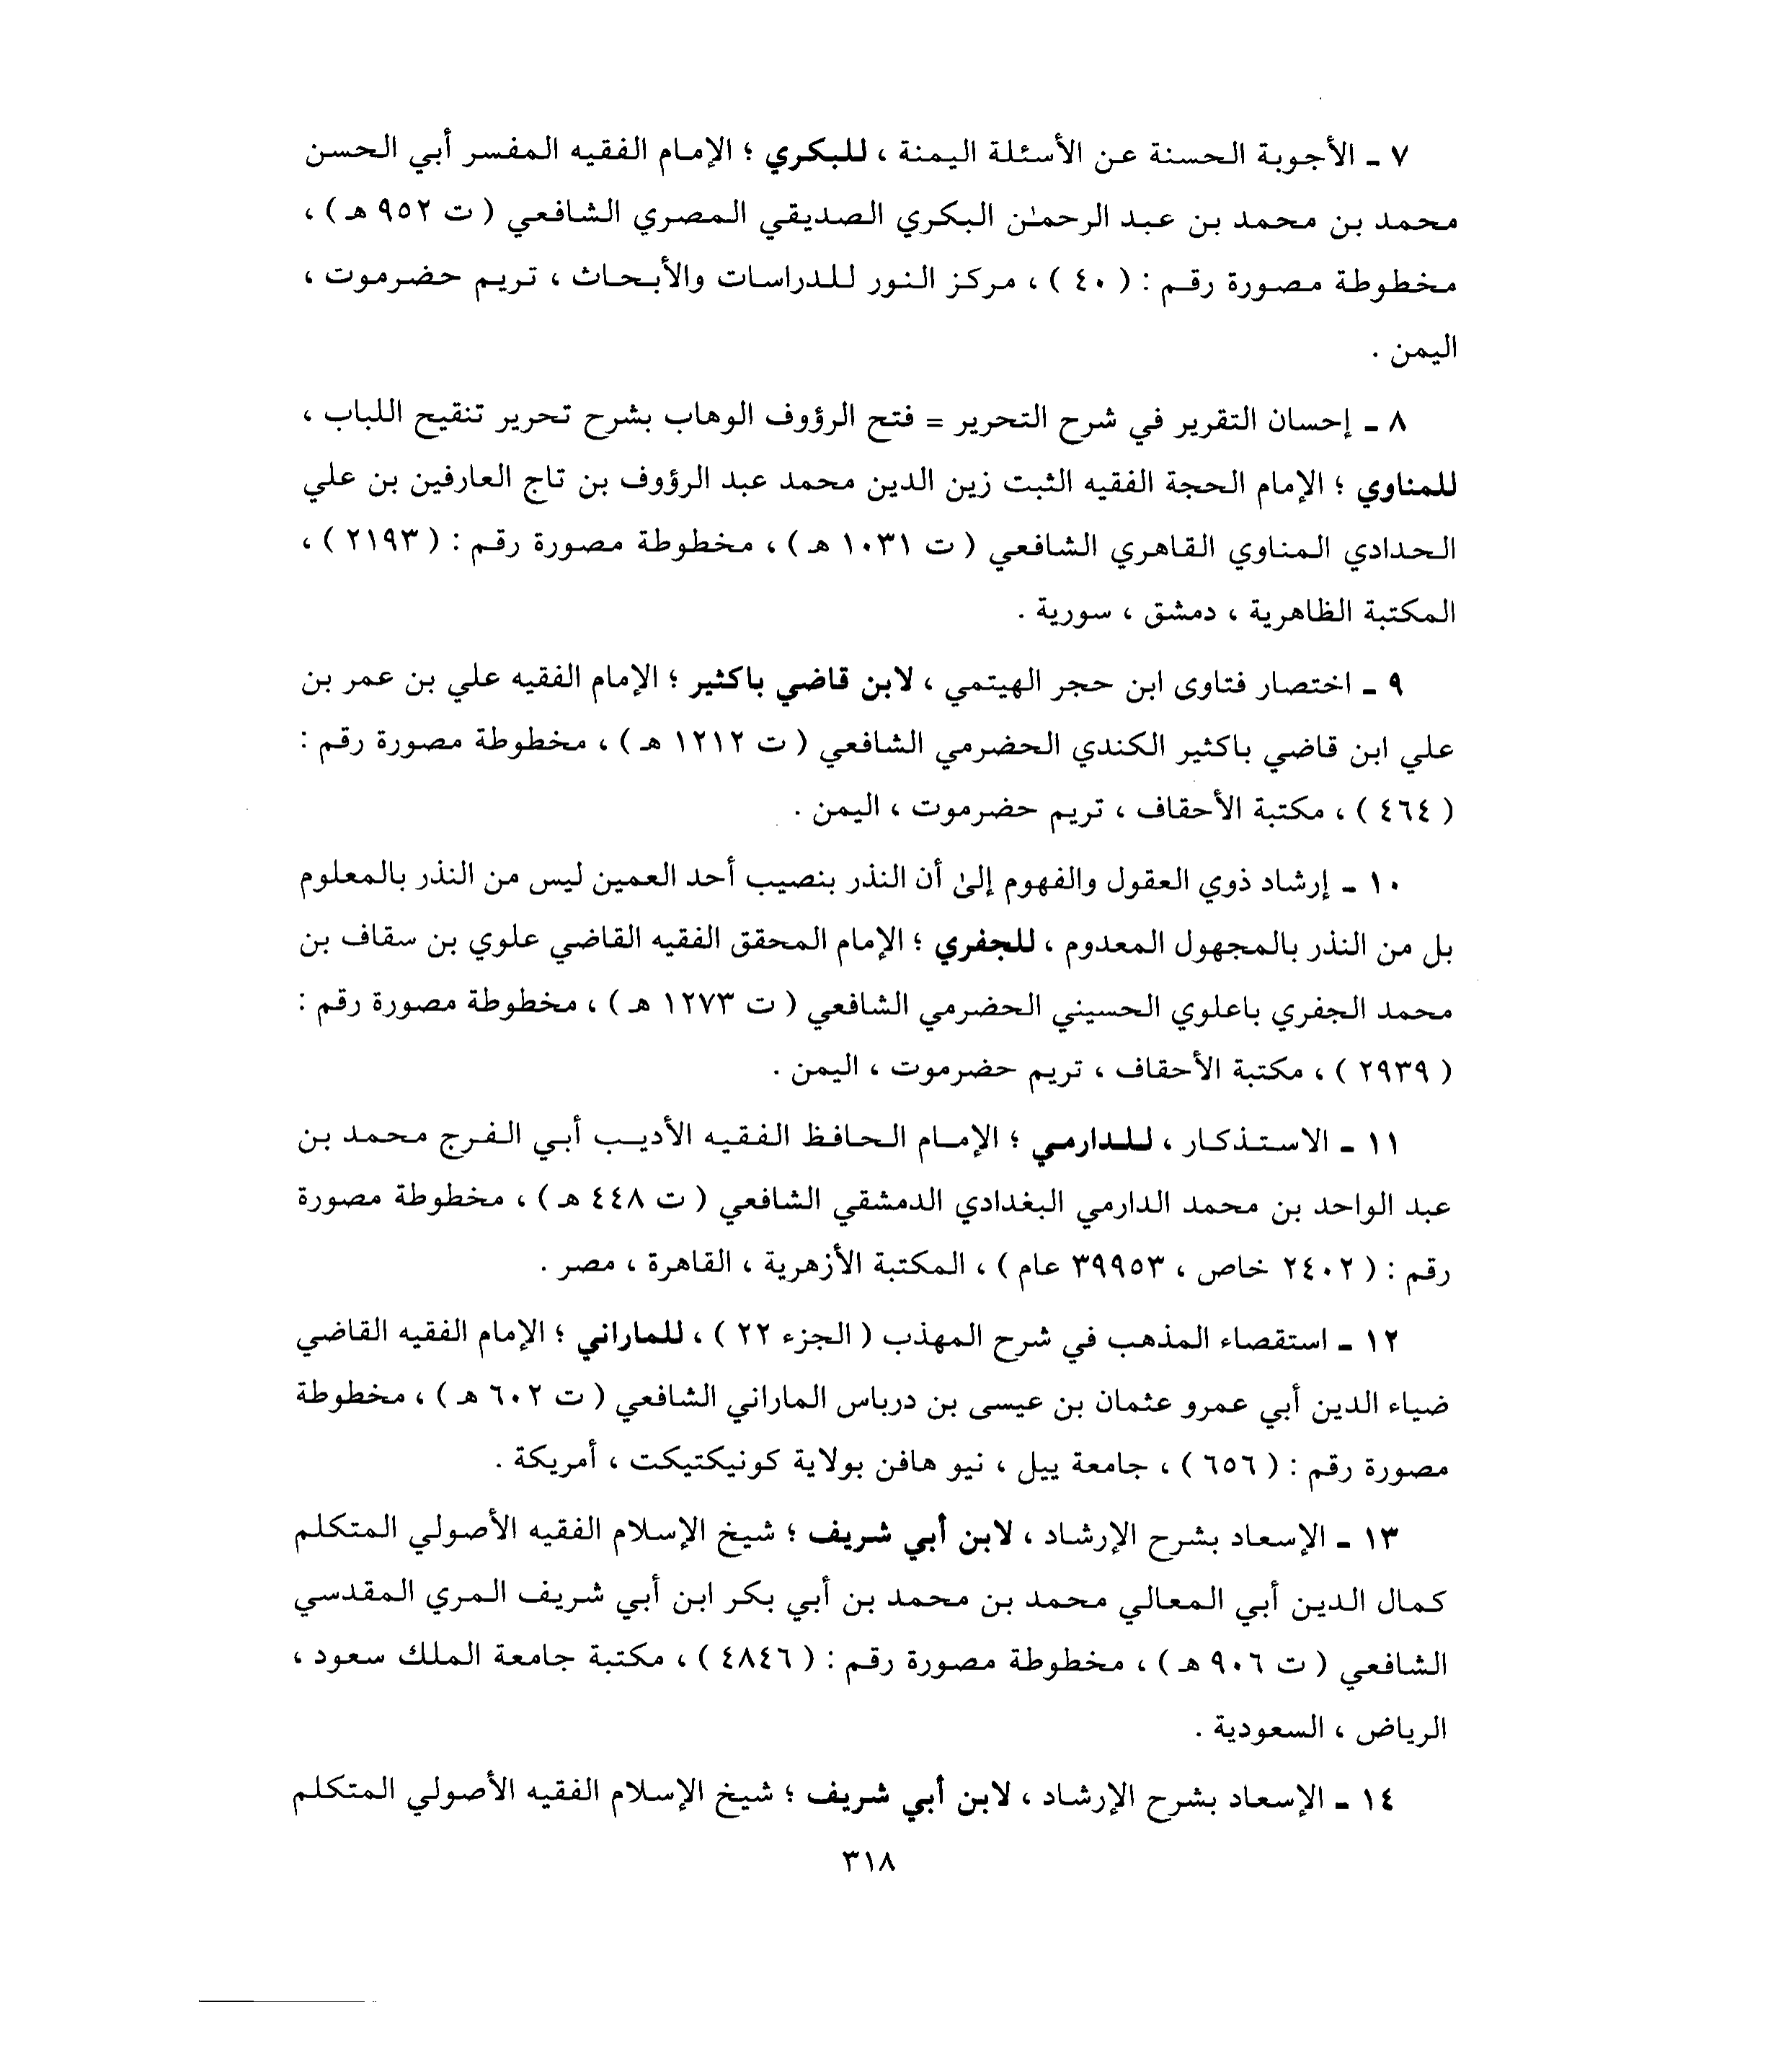 ٧ - الأجوبة الحسنة عن الأسئلة اليمنة ، للبكري ؛ الإمام الفقيه المفسر أبي الحسن
محمد بن محمد بن عبد الرحمٰن البكري الصديقي المصري الشافعي ( ت ٩٥٢ هـ ) ،
مخطوطة مصورة رقم : ( ٤٠ ) ، مركز النور للدراسات والأبحاث ، تريم حضرموت ،
اليمن .
٨ - إحسان التقرير في شرح التحرير = فتح الرؤوف الوهاب بشرح تحرير تنقيح اللباب ،
للمناوي ؛ الإمام الحجة الفقيه الثبت زين الدين محمد عبد الرؤوف بن تاج العارفين بن علي
الحدادي المناوي القاهري الشافعي ( ت ١٠٣١ هـ ) ، مخطوطة مصورة رقم : ( ٢١٩٣ ) ،
المكتبة الظاهرية ، دمشق ، سورية .
٩ - اختصار فتاوى ابن حجر الهيتمي ، لابن قاضي باكثير ؛ الإمام الفقيه علي بن عمر بن
علي ابن قاضي باكثير الكندي الحضرمي الشافعي ( ت ١٢١٢ هـ ) ، مخطوطة مصورة رقم :
( ٤٦٤ ) ، مكتبة الأحقاف ، تريم حضرموت ، اليمن .
١٠ - إرشاد ذوي العقول والفهوم إلىٰ أن النذر بنصيب أحد العمين ليس من النذر بالمعلوم
بل من النذر بالمجهول المعدوم ، للجفري ؛ الإمام المحقق الفقيه القاضي علوي بن سقاف بن
محمد الجفري باعلوي الحسيني الحضرمي الشافعي ( ت ١٢٧٣ هـ ) ، مخطوطة مصورة رقم :
( ٢٩٣٩ ) ، مكتبة الأحقاف ، تريم حضرموت ، اليمن .
١١ - الاستذكار ، للدارمي ؛ الإمام الحافظ الفقيه الأديب أبي الفرج محمد بن
عبد الواحد بن محمد الدارمي البغدادي الدمشقي الشافعي ( ت ٤٤٨ هـ ) ، مخطوطة مصورة
رقم : ( ٢٤٠٢ خاص ، ٣٩٩٥٣ عام ) ، المكتبة الأزهرية ، القاهرة ، مصر .
١٢ - استقصاء المذهب في شرح المهذب ( الجزء ٢٢ ) ، للماراني ؛ الإمام الفقيه القاضي
ضياء الدين أبي عمرو عثمان بن عيسى بن درباس الماراني الشافعي ( ت ٦٠٢ هـ ) ، مخطوطة
مصورة رقم : ( ٦٥٦ ) ، جامعة ييل ، نيو هافن بولاية كونيكتيكت ، أمريكة .
١٣ - الإسعاد بشرح الإرشاد ، لابن أبي شريف ؛ شيخ الإسلام الفقيه الأصولي المتكلم
كمال الدين أبي المعالي محمد بن محمد بن أبي بكر ابن أبي شريف المري المقدسي
الشافعي ( ت ٩٠٦ هـ ) ، مخطوطة مصورة رقم : ( ٤٨٤٦ ) ، مكتبة جامعة الملك سعود ،
الرياض ، السعودية .
١٤ - الإسعاد بشرح الإرشاد ، لابن أبي شريف ؛ شيخ الإسلام الفقيه الأصولي المتكلم
٣١٨